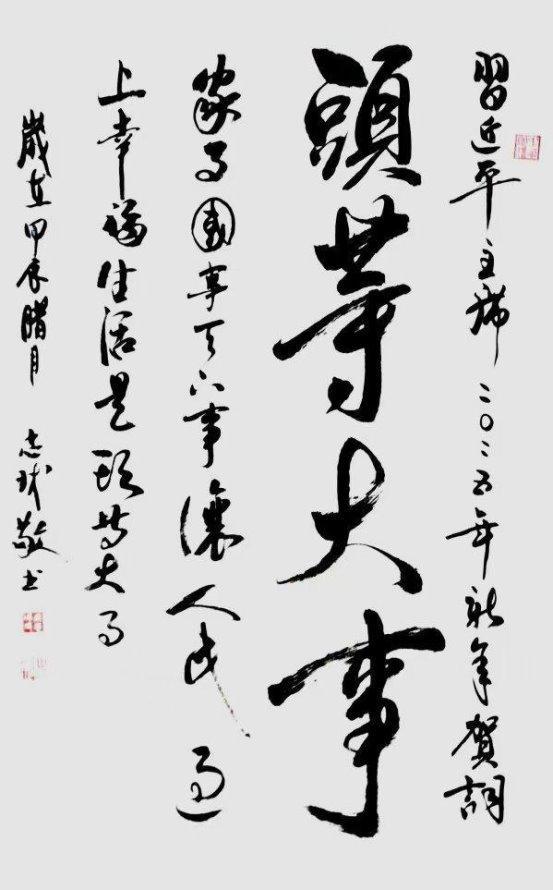 習近平主席二〇二五年新年賀詞
頭等大事
家事國事天下事讓人民過
上幸福生活是頭等大事
歲在甲辰腊月 志球敬书